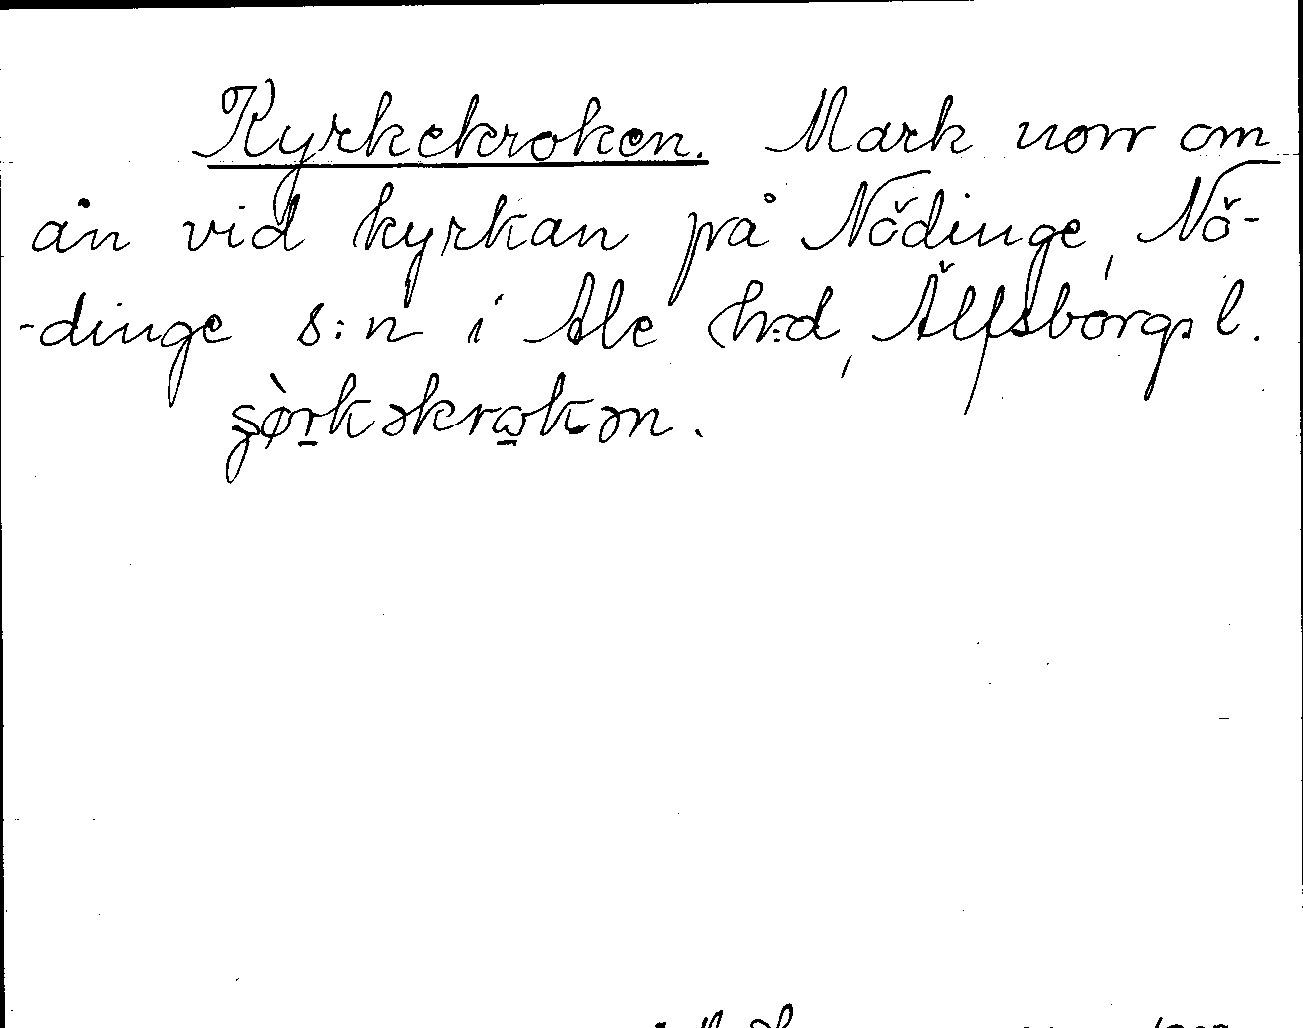 Kyrkekroken. Mark norr om
ån vid kyrkan på Nödinge, Nö-
-dinge s:n i Ale h:d, Älfsborgs l.